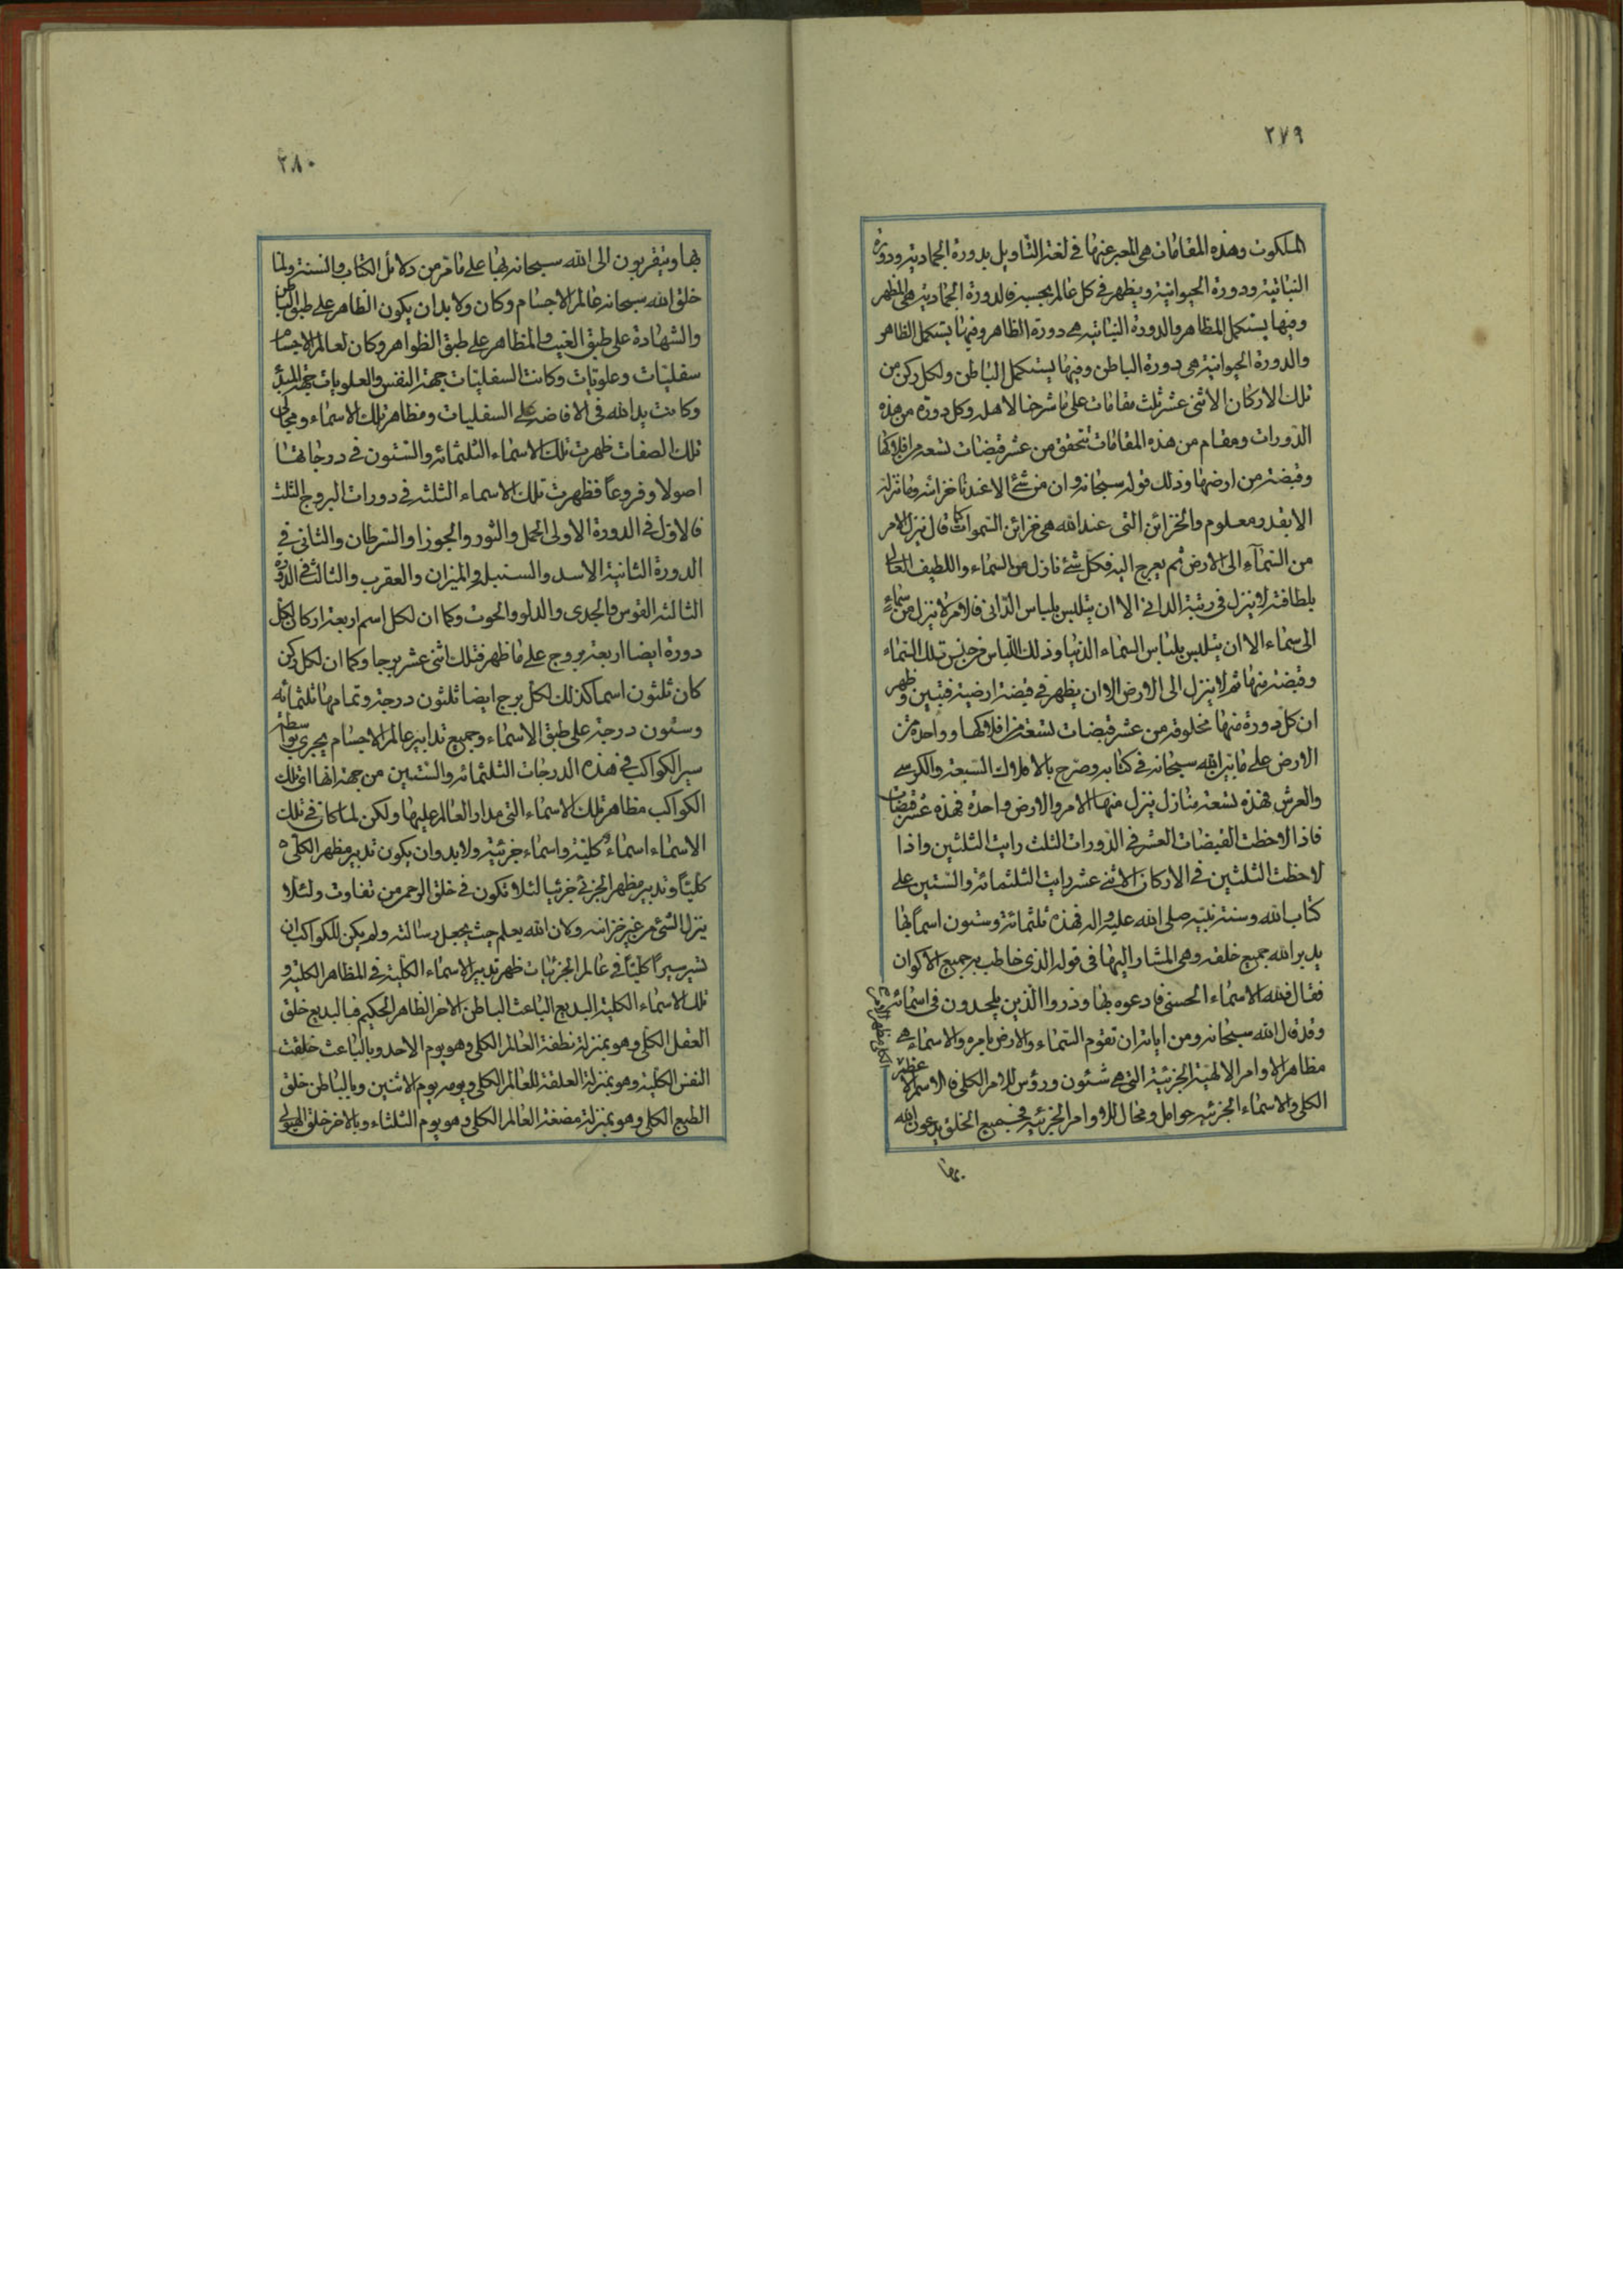 ٢٧٩
الملكوت وهذه المقامات هى المعبر عنها فى لغة التاويل بدورة الجمادية ودورة
النباتية ودورة الحيوانية ويظهر فى كل عالم بحسبه فالدورة الجمادية هى المظهر
وفيها يستكمل المظاهر والدورة النباتية هى دورة الظاهر وفيها يستكمل الظاهر
والدورة الحيوانية هى دورة الباطن وفيها يستكمل الباطن ولكل ركن من
تلك الاركان الاثنى عشر ثلث مقامات على ما شرحنا لاهله وكل دورة من هذه
الدورات ومقام من هذه المقامات تتحقق من عشر قبضات تسعة من افلاكها
وقبضة من ارضها وذلك قوله سبحانه وان من شئ الا عندنا خزائنه وما ننزله
الا بقدر معلوم والخزائن التى عند الله هى خزائن السموات كما قال ينزل الامر
من السماء الى الارض ثم يعرج اليه فكل شئ نازل من السماء واللطيف العالى
بلطافته لا ينزل فى رتبة الدانى الا ان يتلبس بلباس الدانى فالامر لا ينزل من سماء
الى سماء الا ان يتلبس بلباس السماء الدنيا وذلك اللباس من جنس تلك السماء
وقبضة منها ثم لا ينزل الى الارض الا ان يظهر فى قبضة ارضية فتبين وظهر
ان كل دورة منها مخلوقة من عشر قبضات تسعة من افلاكها وواحدة من
الارض على ما بينه الله سبحانه فى كتابه وصرح بالافلاك السبعة والكرسى
والعرش فهذه تسعة منازل ينزل منها الامر والارض واحدة فهذه عشر قبضات
فاذا لاحظت القبضات العشر فى الدورات الثلث رايت الثلثين واذا
لاحظت الثلثين فى الاركان الاثنى عشر رايت الثلثمائة والستين على
كتاب الله وسنة نبيه صلى الله عليه واله فهذه ثلثمائة وستون اسما بها
يدبر الله جميع خلقه وهى المشار اليها فى قوله الذى خاطب به جميع الاكوان
فقال فلله الاسماء الحسنى فادعوه بها وذروا الذين يلحدون فى اسمائه
وقد قال الله سبحانه ومن اياته ان تقوم السماء والارض بامره والاسماء هى
مظاهر الاوامر الالهية الجزئية التى هى شئون ورؤس للامر الكلى فالاسم الاعظم
الكلى والاسماء الجزئية حوامل ومحال للاوامر الجزئية فجميع الخلق يدعون الله
بها
٢٨٠
بها ويتقربون الى الله سبحانه بها على ما مر من دلائل الكتاب والسنة ولما
خلق الله سبحانه عالم الاجسام وكان ولا بد ان يكون الظاهر على طبق الباطن
والشهادة على طبق الغيب والمظاهر على طبق الظواهر وكان لعالم الاجسام
سفليات وعلويات وكانت السفليات جهة النفس والعلويات جهة المبدأ
وكانت يد الله فى الافاضة على السفليات ومظاهر تلك الاسماء ومجالى
تلك الصفات ظهرت تلك الاسماء الثلثمائة والستون فى درجاتها
اصولا وفروعا فظهرت تلك الاسماء الثلثة فى دورات البروج الثلث
فالاول فى الدورة الاولى الحمل والثور والجوزا والسرطان والثانى فى
الدورة الثانية الاسد والسنبلة والميزان والعقرب والثالث فى الدورة
الثالثة القوس والجدى والدلو والحوت وكما ان لكل اسم اربعة اركان لكل
دورة ايضا اربعة بروج على ما ظهر فتلك اثنى عشر برجا وكما ان لكل ركن
كان ثلثون اسما كذلك لكل برج ايضا ثلثون درجة وتمامها ثلثمائه
وستون درجة على طبق الاسماء وجميع تدابير عالم الاجسام يجرى بواسطة
سير الكواكب فى هذه الدرجات الثلثمائة والستين من جهة انها اى تلك
الكواكب مظاهر تلك الاسماء التى مدار العالم عليها ولكن لما كان فى تلك
الاسماء اسماء كلية واسماء جزئية ولا بد وان يكون تدبير مظهر الكلى
كليا وتدبير مظهر الجزئى جزئيا لئلا تكون فى خلق الرحمن من تفاوت ولئلا
ينزل الشئ من غير خزائنه ولان الله يعلم حيث يجعل رسالته ولم يكن للكواكب ان
تسير سيرا كليا فى عالم الجزئيات ظهر تدبير الاسماء الكلية فى المظاهر الكلية و
تلك الاسماء الكلية البديع الباعث الباطن الاخر الظاهر الحكيم فبالبديع خلق
العقل الكلى وهو بمنزلة نطفة العالم الكلى وهو يوم الاحد وبالباعث خلقت
النفس الكلية وهو بمنزلة العلقة للعالم الكلى ويومه يوم الاثنين وبالباطن خلق
الطبع الكلى وهو بمنزلة مضغة العالم الكلى وهو يوم الثلثاء وبالاخر خلق الهيولى